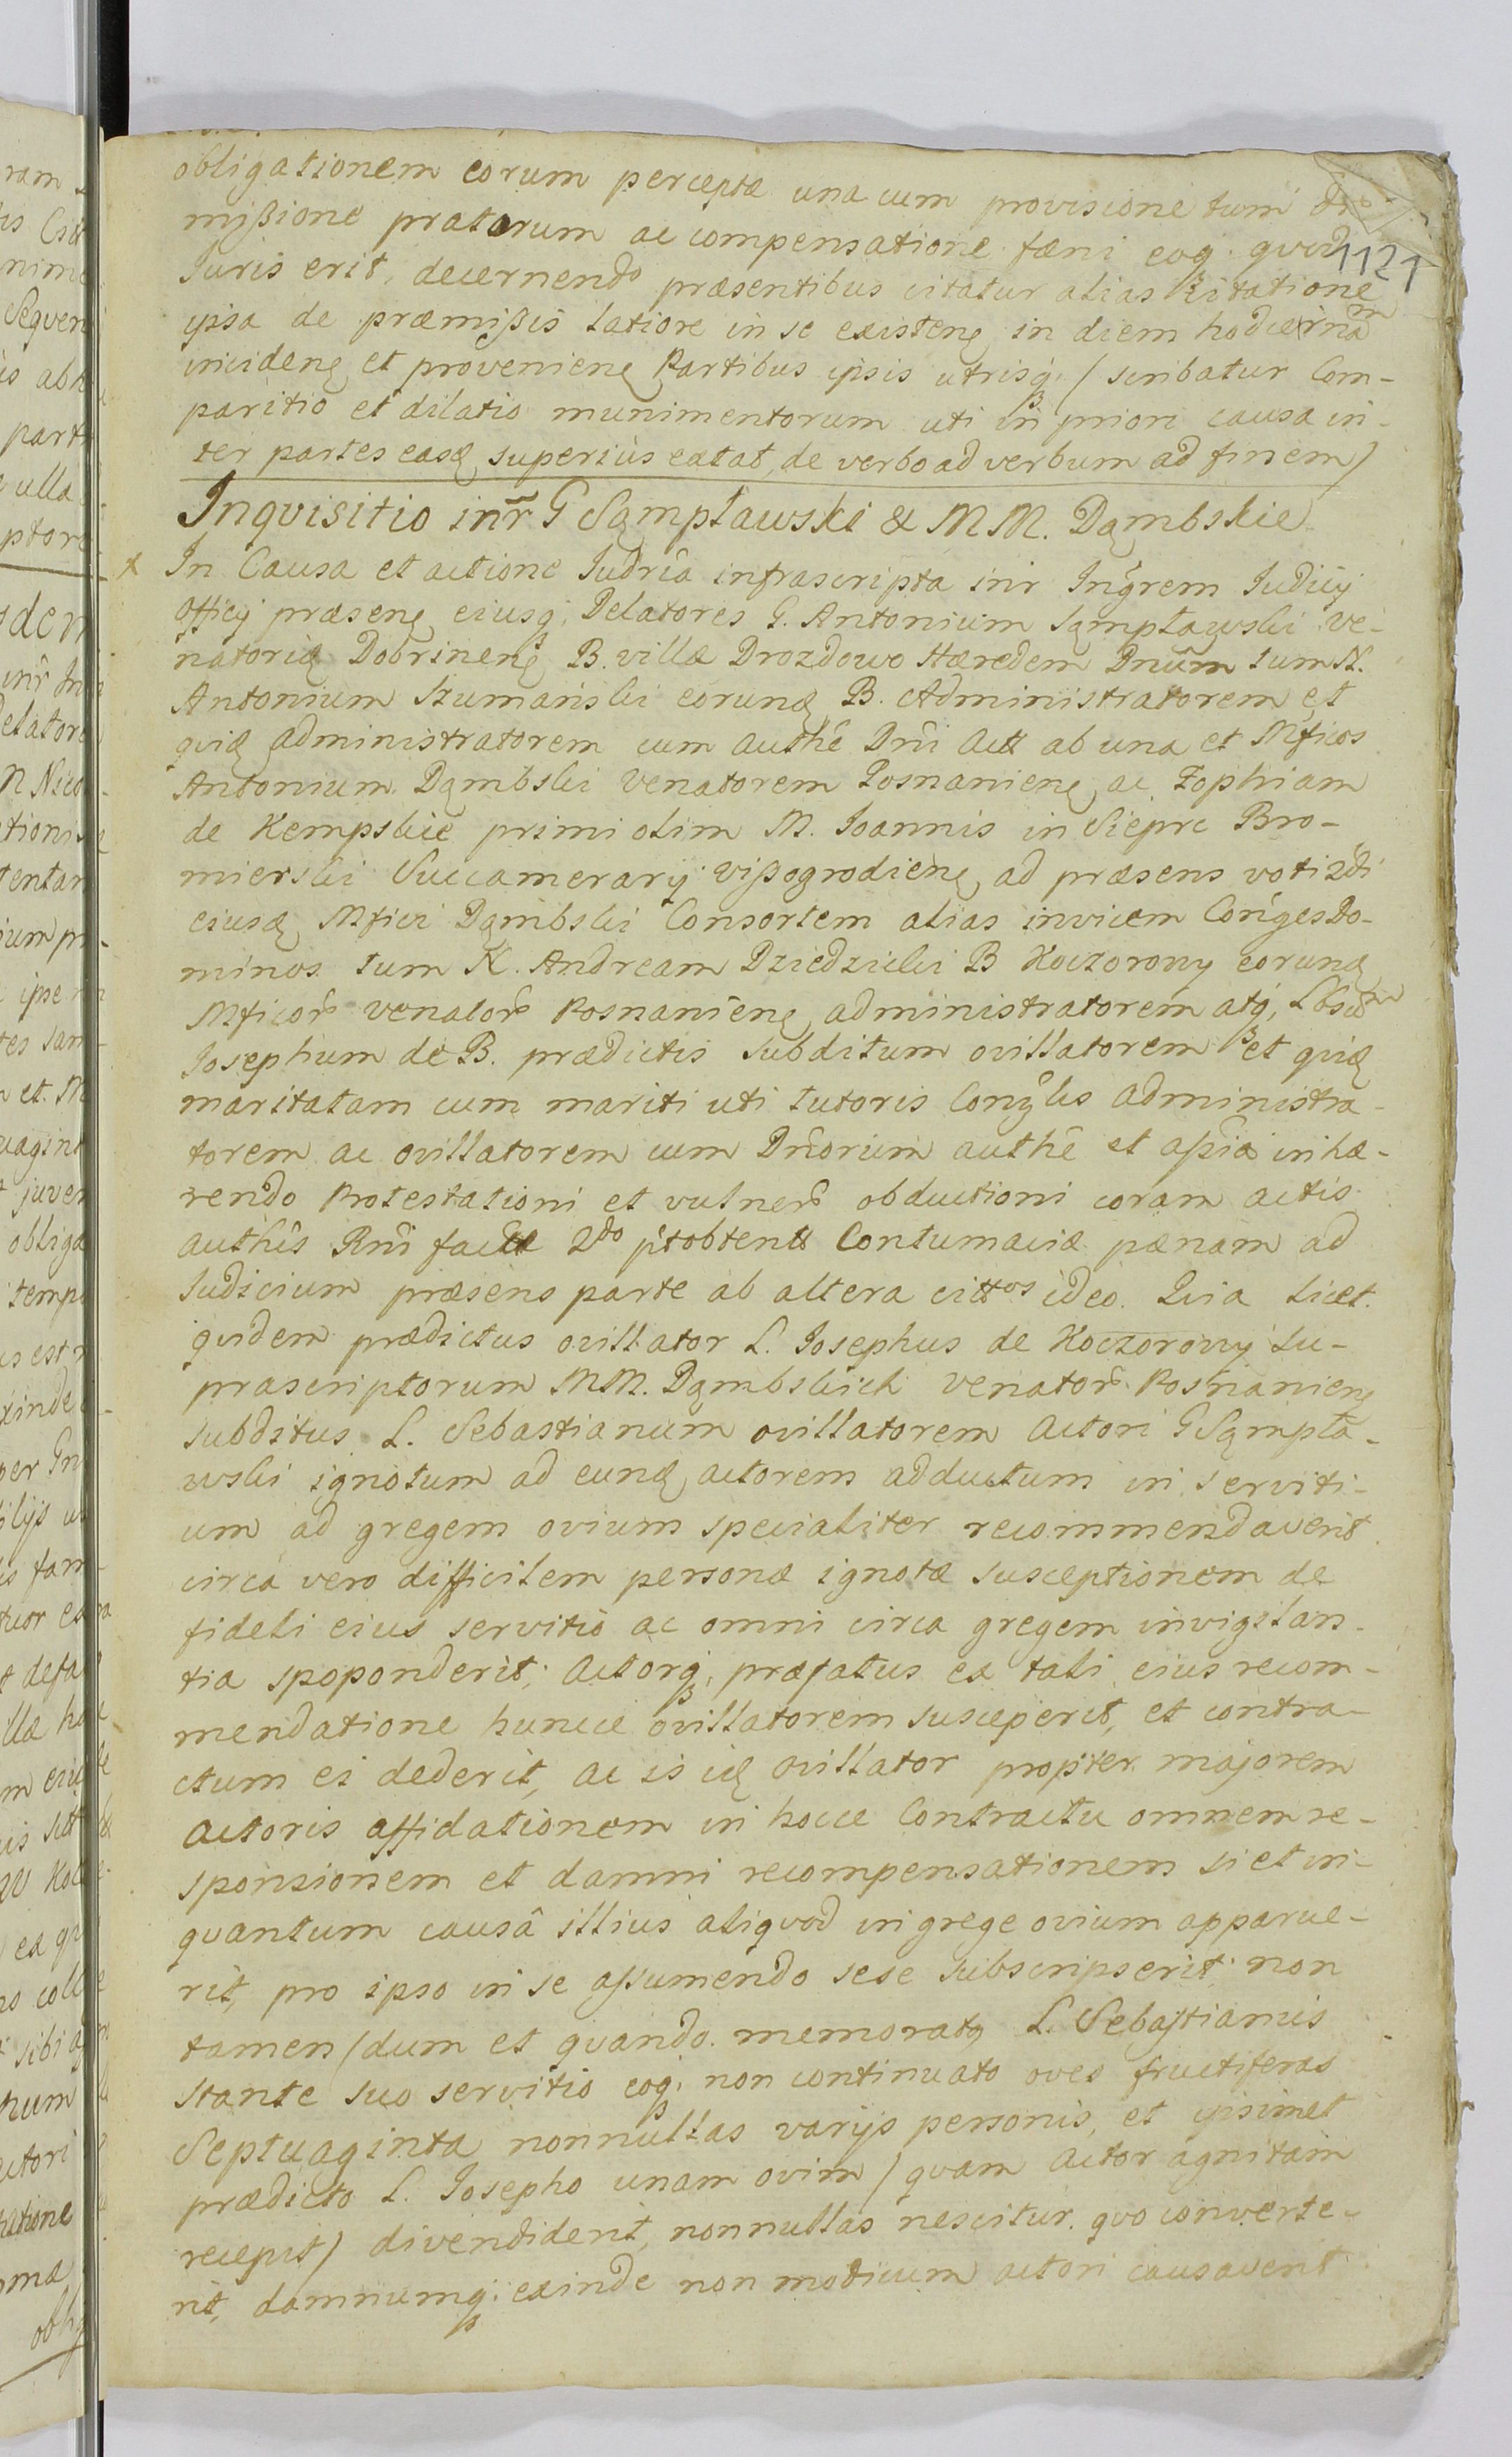 obligationem eorum perceptæ una cum provisione tum di-
mißione pratorum ac compensatione fæni eoq quid
1121
Juris erit, decernendo præsentibus citatur alias Citatione
ipsa de præmißis latiore in se existenę in diem hodiernam
incidenę et provenienę Partibus ipsis utrisq; (scribatur Com-
paritio et dilatio munimentorum uti in priori causa in-
ter partes easą superius extat, de verbo ad verbum ad finem)
Inquisitio inr̃ G Sąmpławski & M M. Dąmbskie
x In Causa et actione Iudrîa infrascripta inr Ingrem Iudicij
Officij præsenę eiusq; Delatores G. Antonium Sąmpławski Ve-
natorią Dobrinenę B. villæ Drozdowo Hæredem Dnûm tum N.
Antonium Szumański eorundę B. Administratorem et
quią administratorem cum Authê Dnî Act ab una et Mficos
Antonium Dąmbski Venatorem Posnanienę ac Zophiam
de Kempskie primi olim M. Joannis in Siepre Bro-
mierski Succamerarij Vißogrodienę ad præsens voti 2di
eiusą Mfici Dąmbski Consortem alias invicem Conĝes Do-
minos tum N. Andream Dziedzicki B Koczorowy eorundę
Mficor̃ Venator̃ Posnanienę administratorem atq;
Josephum de B. prædictis subditum ovillatorem et quią
maritatam cum mariti uti tutoris Conĝlis Administra-
torem ac ovillatorem cum Dnorum authê et aßią inhæ-
rendo Protestationi et vulner̃ obductioni coram actis
authîs Rnî factæ 2do Contumaciæ pænam ad
Iudicium præsens parte ab altera cittos ideo. Quia licet
quidem prædictus ovillator L. Josephus de Koczorowy Su-
prascriptorum MM. Dąmbskich Venator̃ Posnanienę
subditus L. Sebastianum ovillatorem Actori G Sąmpła-
wski ignotum ad eundę actorem adductum in serviti-
um ad gregem ovium specialiter recommendaverit
circa vero difficilem personæ ignotæ susceptionem de
fideli eius servitio ac omni circa gregem invigilan-
tia spoponderit; Actorq; præfatus ex tali eius recom-
mendatione huncce ovillatorem susceperit, et contra-
ctum ei dederit, ac is ią ovillator propter majorem
actoris affidationem in hocce Contractu omnem re-
sponsionem et damni recompensationem si et in-
quantum causâ illius aliquod in grege ovium apparue-
rit, pro ipso in se assumendo sese subscripserit; non
tamen (dum et quando memoratq L. Sebastianus
stante suo servitio eoq; non continuato oves fructiferas
Septuaginta nonnullas varijs personis, et ipsimet
prædicto L. Josepho unam ovim (quam Actor agnitam
recepit) divendiderit, nonnullas nescitur quo converte-
rit, damnumq; exinde non modicum actori causaverit